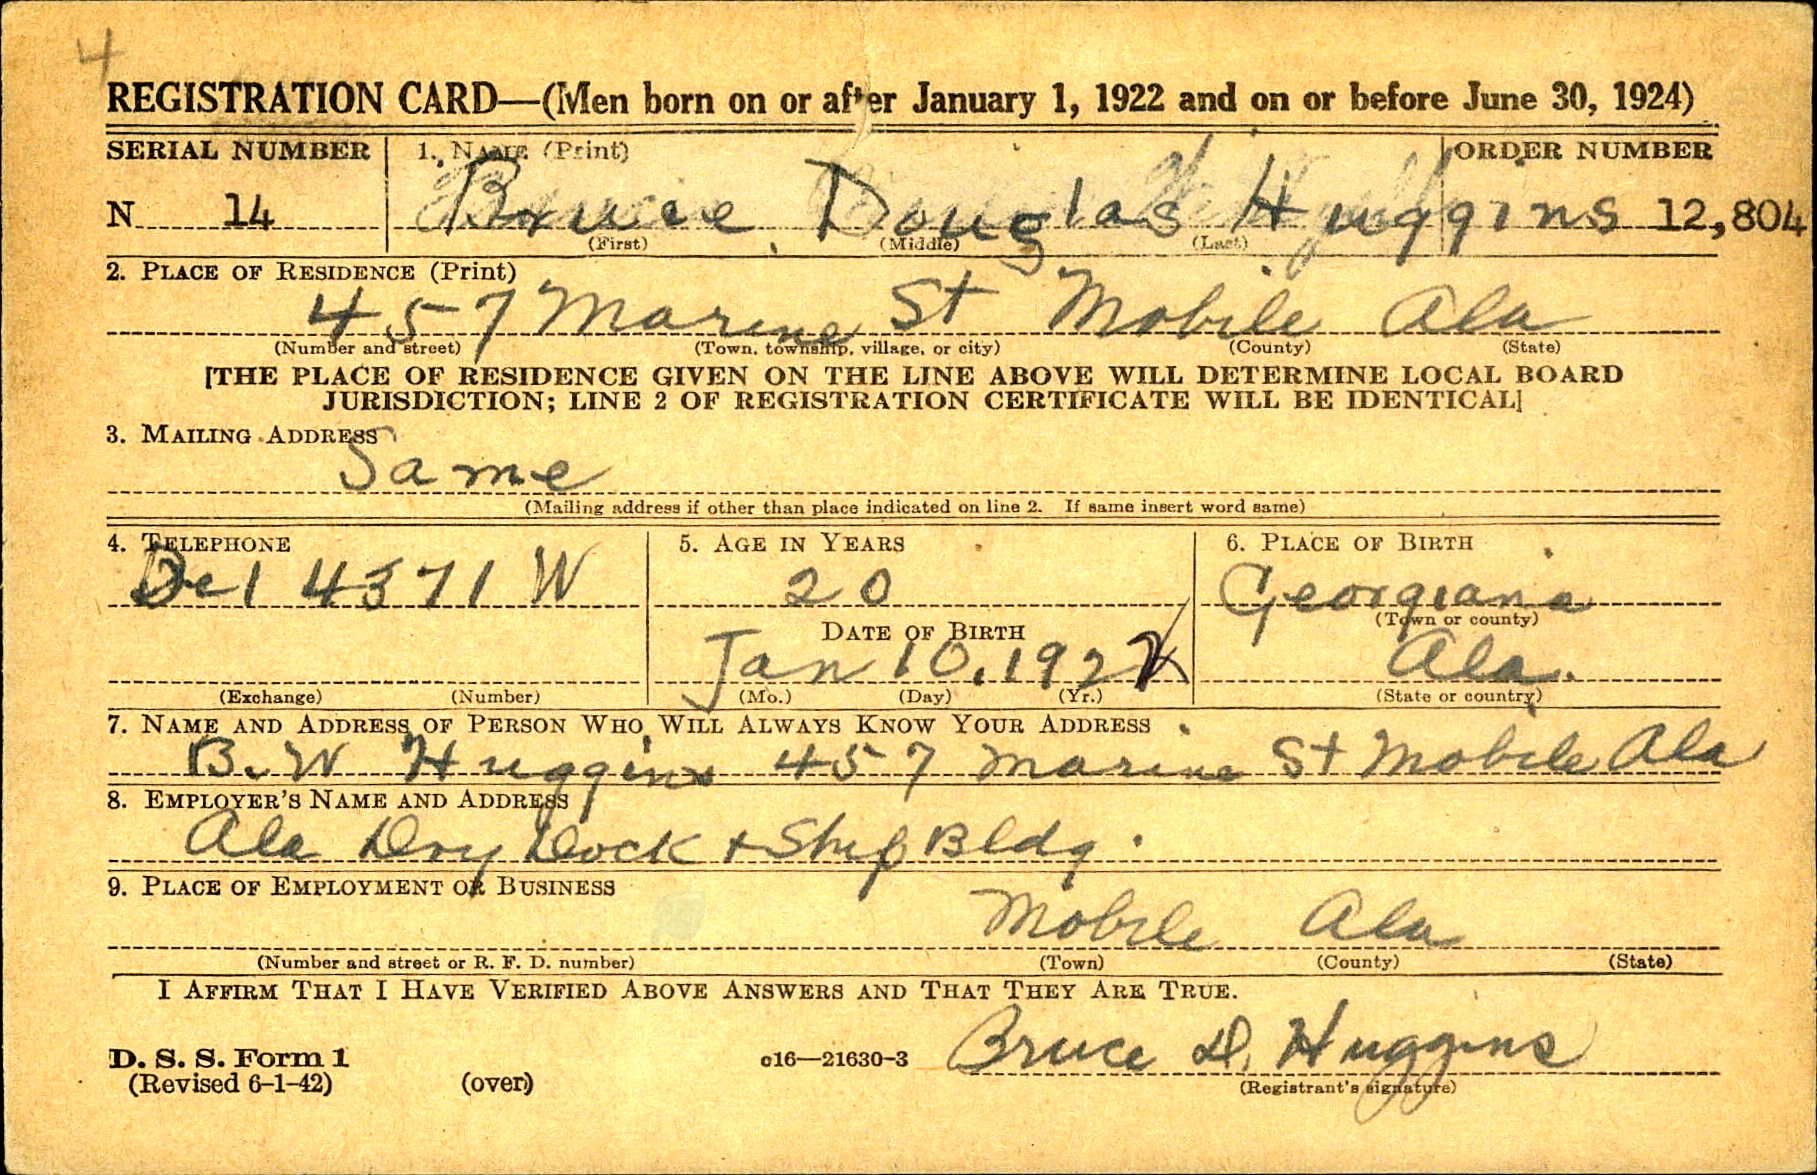 4
REGISTRATION CARD—(Men born on or after January 1, 1922 and on or before June 30, 1924)
SERIAL NUMBER 1. NAME (Print) ORDER NUMBER
N 14 Bruce Douglas Huggins 12,804
(First) (Middle) (Last)
2. PLACE OF RESIDENCE (Print)
457 Marine St Mobile Ala
(Number and street) (Town, township, village, or city) (County) (State)
[THE PLACE OF RESIDENCE GIVEN ON THE LINE ABOVE WILL DETERMINE LOCAL BOARD
JURISDICTION; LINE 2 OF REGISTRATION CERTIFICATE WILL BE IDENTICAL]
3. MAILING ADDRESS
Same
(Mailing address if other than place indicated on line 2. If same insert word same)
4. TELEPHONE 5. AGE IN YEARS 6. PLACE OF BIRTH
Del 4371 W 20 Georgiana
DATE OF BIRTH (Town or county)
Jan 10, 1922 Ala.
(Exchange) (Number) (Mo.) (Day) (Yr.) (State or country)
7. NAME AND ADDRESS OF PERSON WHO WILL ALWAYS KNOW YOUR ADDRESS
B. W Huggins 457 Marine St Mobile Ala
8. EMPLOYER'S NAME AND ADDRESS
Ala Dry Dock + Ship Bldg.
9. PLACE OF EMPLOYMENT OR BUSINESS
Mobile Ala
(Number and street or R. F. D. number) (Town) (County) (State)
I AFFIRM THAT I HAVE VERIFIED ABOVE ANSWERS AND THAT THEY ARE TRUE.
Bruce D. Huggins
D. S. S. Form 1 c16—21630-3
(Revised 6-1-42) (over) (Registrant's signature)